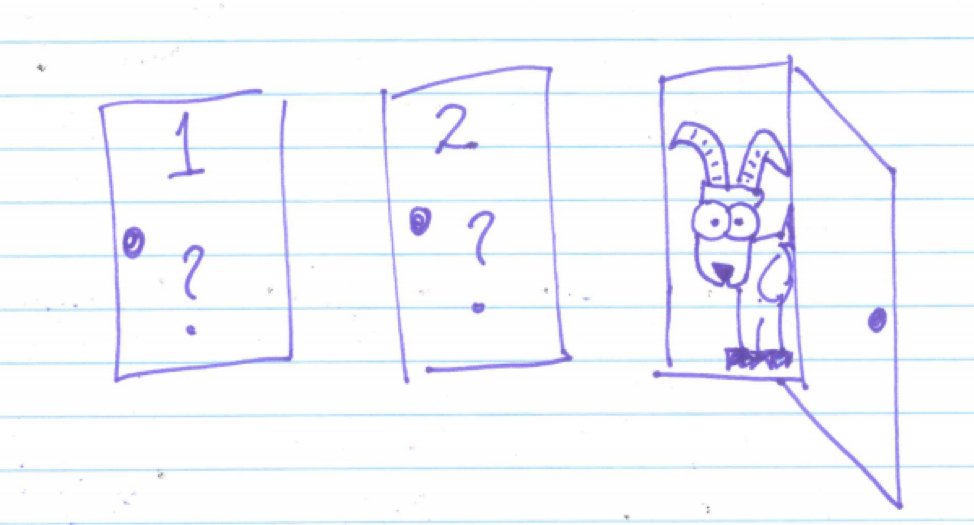 1 2
? ?